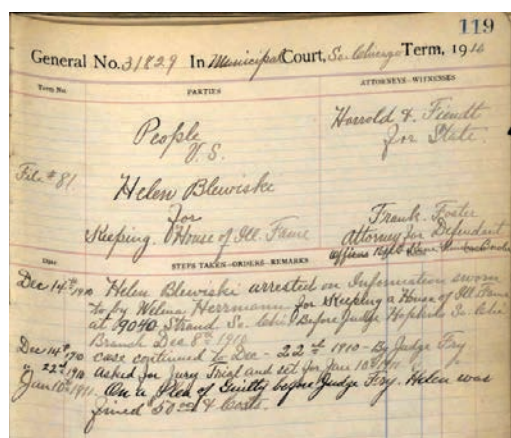 119
General No. 31829 In Municipal Court, So. Chicago Term, 1910
Term No. PARTIES ATTORNEYS-WITNESSES
People Harrold & Fiendt
V.S. for State.
File #81
Helen Blewiske
for Frank Foster
Keeping House of Ill. Fame Attorney for Defendant
Officers
Date STEPS TAKEN-ORDERS-REMARKS
Dec 14th 1910 Helen Blewiske arrested on Information sworn
to by Welma Herrmann for Keeping a House of Ill Fame
at 9040 Strand So. Chi. Before Judge Hopkins So. Chi.
Branch Dec 8th 1910
Dec 14th 1910 case continued to Dec - 22nd 1910 - By Judge Fry
" 22nd 1910 asked for Jury Trial and set for Jan 10th 1911.
Jan 10th 1911. On a Plea of Guilty before Judge Fry. Helen was
fined 50 00 & Costs.